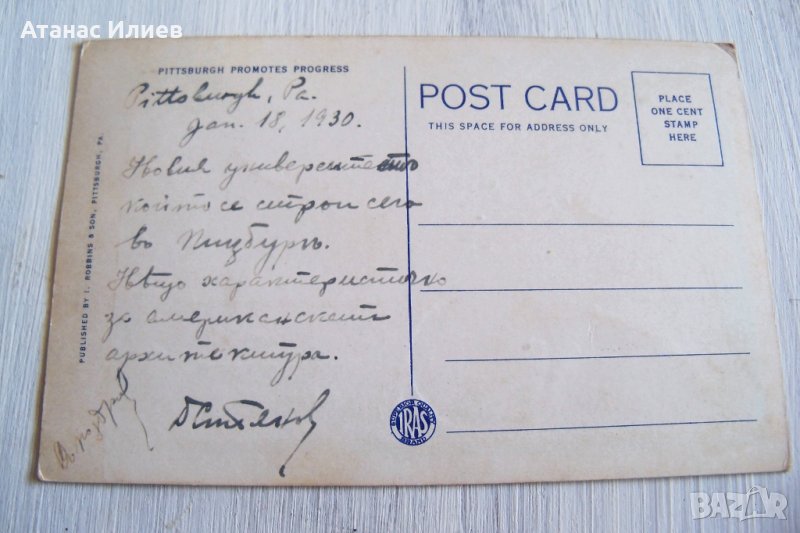 Атанас Илиев
PITTSBURGH PROMOTES PROGRESS
Pittsburgh, Pa.
Jan. 18, 1930.
Новия университетъ
който се строи сега
въ Пицбургъ.
Нѣщо характеристично
за американската
архитектура.
PUBLISHED BY I. ROBBINS & SON, PITTSBURGH, PA.
POST CARD
THIS SPACE FOR ADDRESS ONLY
PLACE
ONE CENT
STAMP
HERE
SUPERIOR QUALITY
IRAS
BRAND
BAZAR